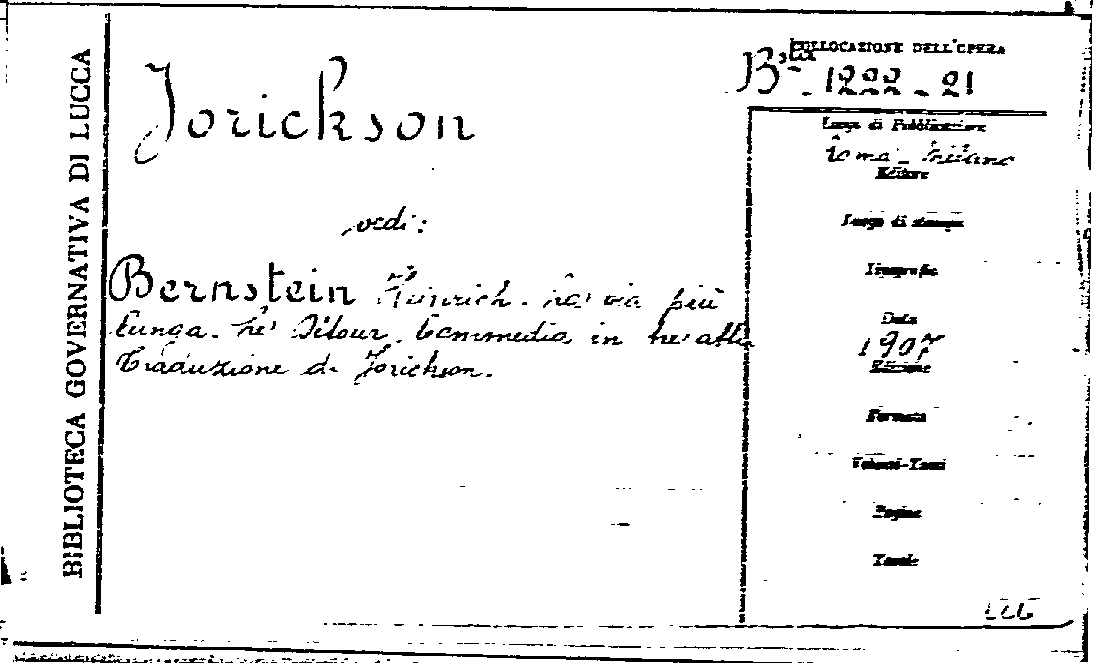 BIBLIOTECA GOVERNATIVA DI LUCCA
Jorickson
vedi:
Bernstein Heinrich. La via più
lunga. Le Détour. Commedia in tre atti
Traduzione di Jorickson.
COLLOCAZIONE DELL'OPERA
Bta - 1222 - 21
Luogo di Pubblicazione
Roma - Milano
Editore
Luogo di stampa
Tipografia
Data
1907
Edizione
Formato
Volumi-Tomi
Pagine
Tavole